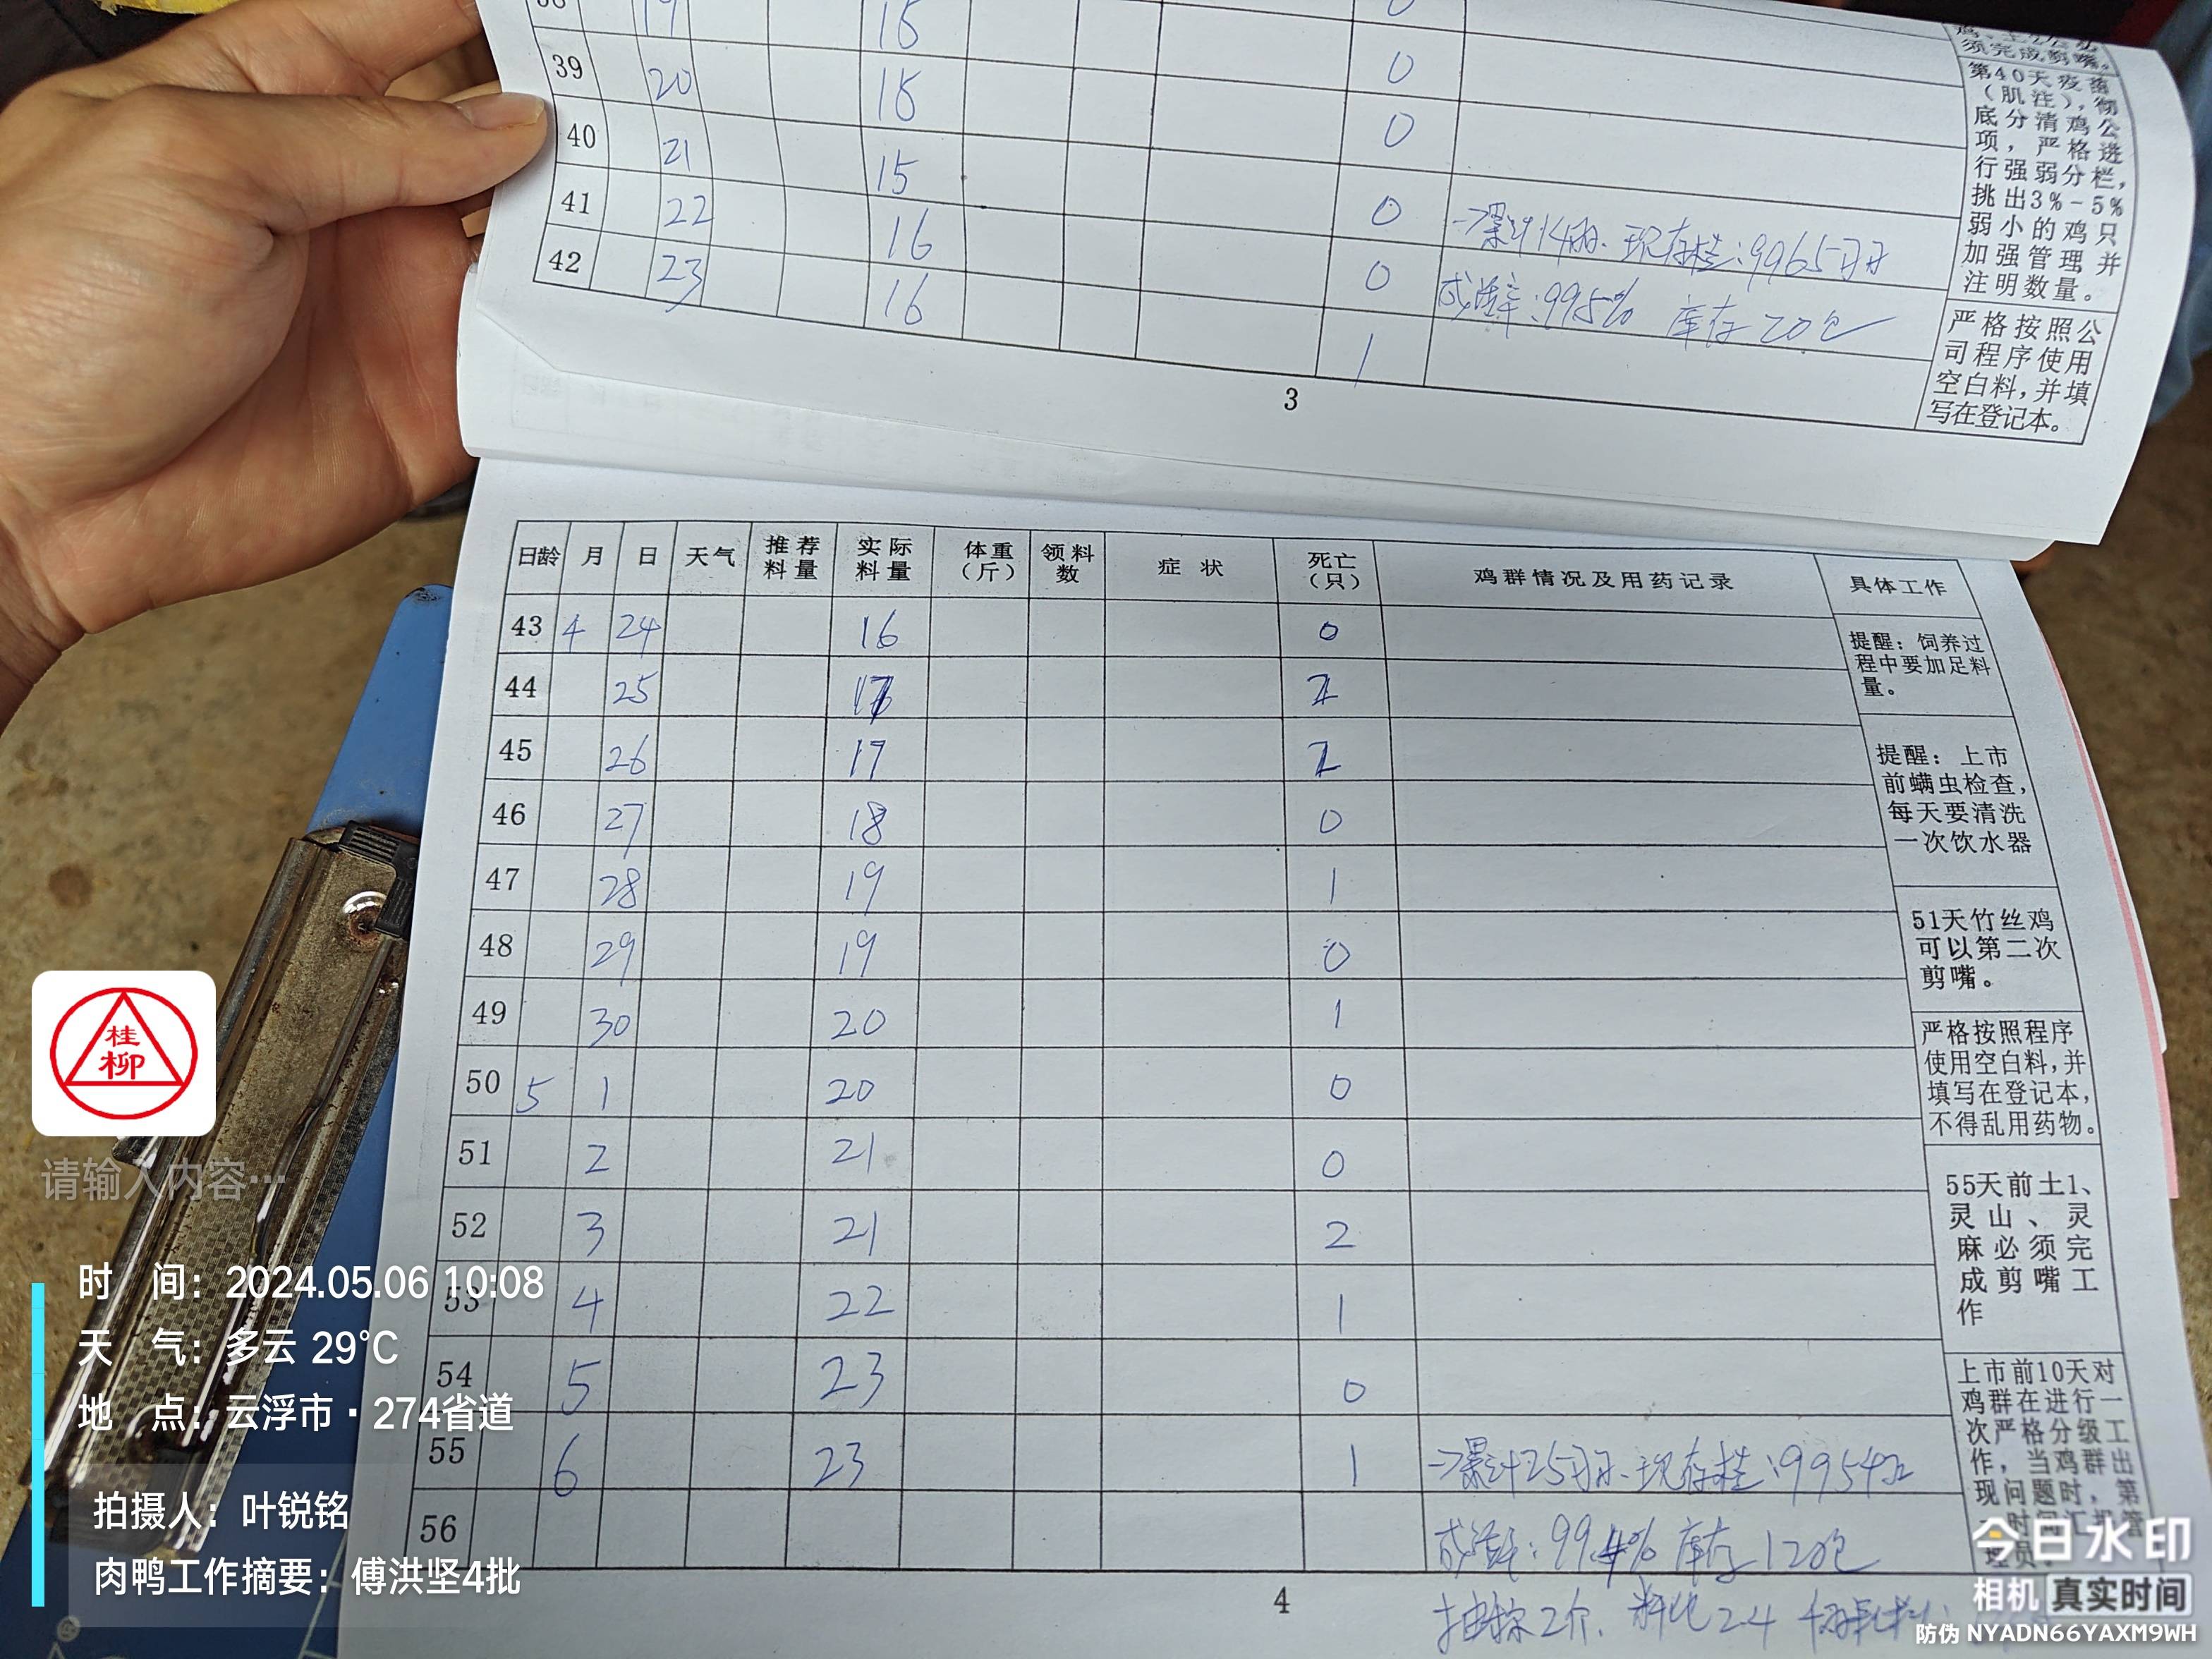 38 19 15 0
须完成剪嘴。
39 20 15 0
40 21 15 0
41 22 16 0
42 23 16 0
1
第40天疫苗
（肌注），彻
底分清鸡公
项，严格进
行强弱分栏，
挑出3%-5%
弱小的鸡只
加强管理并
注明数量。
→累计14 现存栏:9965只
成活率:99.5% 库存20包
严格按照公
司程序使用
空白料，并填
写在登记本。
3
日龄 月 日 天气 推荐料量 实际料量 体重（斤） 领料数 症状 死亡（只） 鸡群情况及用药记录 具体工作
43 4 24 16 0
44 25 17
45 26 17
46 27 18 0
47 28 19 1
48 29 19 0
49 30 20 1
50 5 1 20 0
51 2 21 0
52 3 21 2
53 4 22 1
54 5 23 0
55 6 23 1 →累计25只 现存栏:9954只
56 成活率:99.4% 库存120包
抽棕2个. 料比24
提醒：饲养过
程中要加足料
量。
提醒：上市
前螨虫检查，
每天要清洗
一次饮水器
51天竹丝鸡
可以第二次
剪嘴。
严格按照程序
使用空白料，并
填写在登记本，
不得乱用药物。
55天前土1、
灵山、灵
麻必须完
成剪嘴工
作
上市前10天对
鸡群在进行一
次严格分级工
作，当鸡群出
现问题时，第
一时间汇报管
理员。
4
桂
柳
请输入内容…
时 间：2024.05.06 10:08
天 气：多云 29℃
地 点：云浮市·274省道
拍摄人：叶锐铭
肉鸭工作摘要：傅洪坚4批
今日水印
相机 真实时间
防伪 NYADN66YAXM9WH